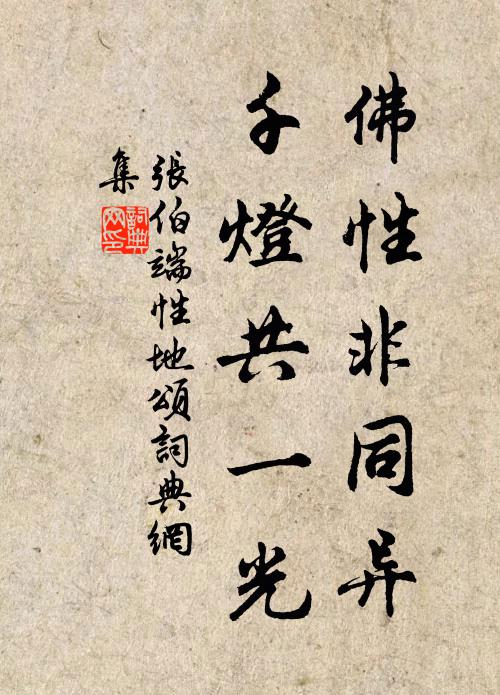 佛性非同异
千燈共一光
張伯端性地頌詞典網
集
詞典
网印